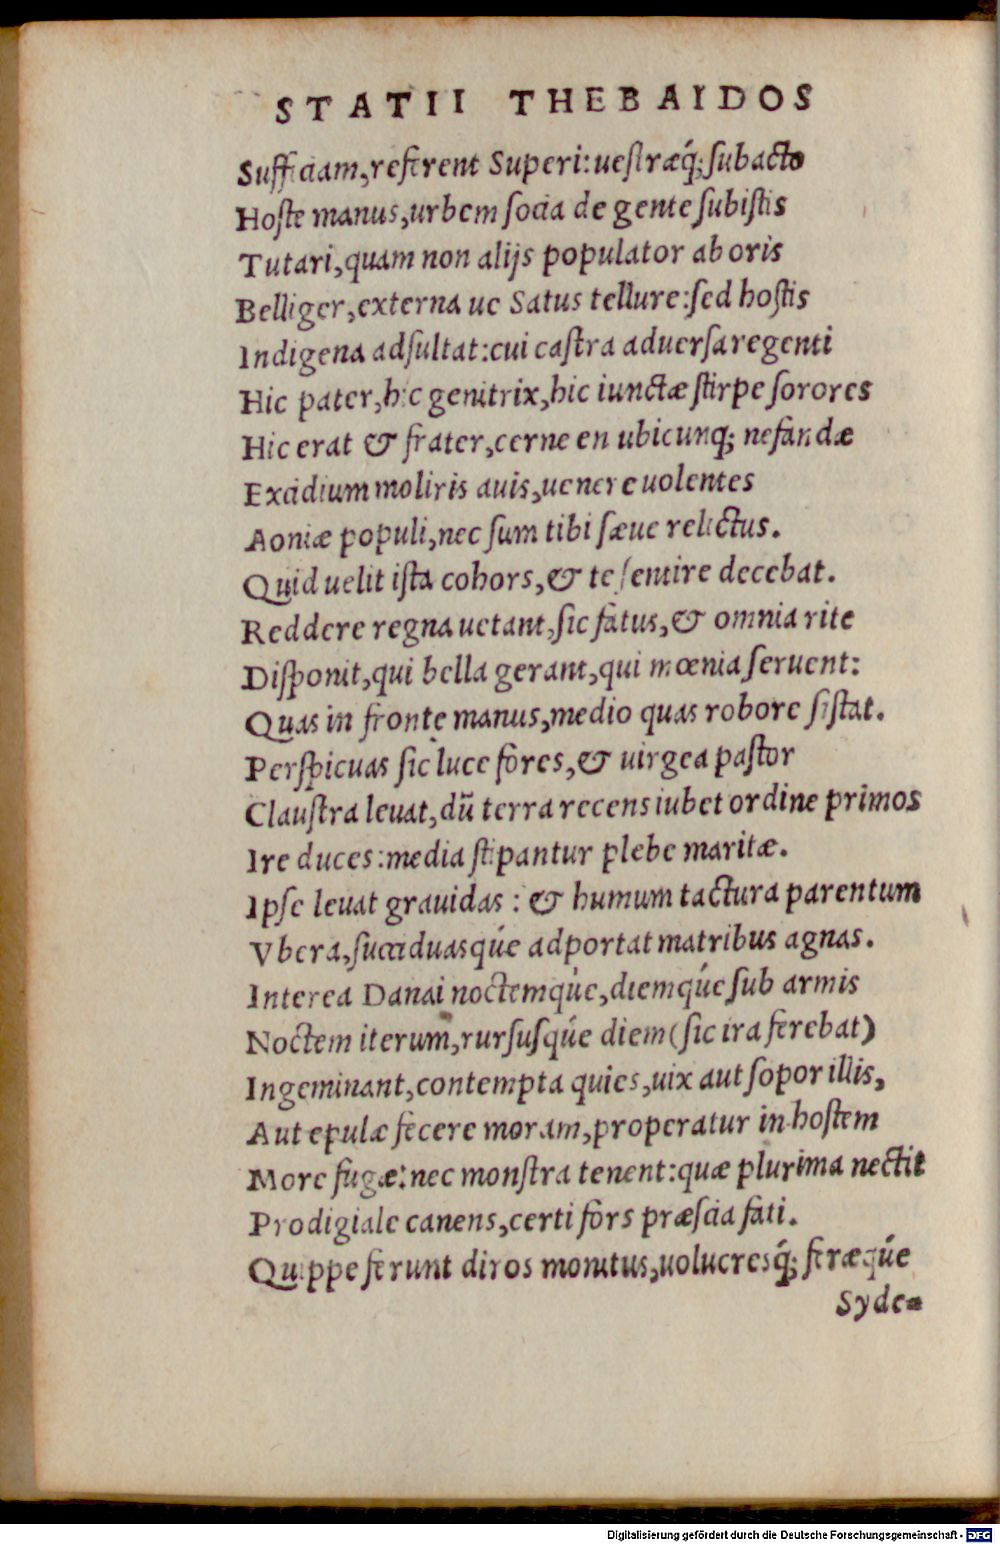 STATII THEBAIDOS
Sufficiam, referent Superi: uestræq́; subacto
Hoste manus, urbem socia de gente subistis
Tutari, quam non alijs populator ab oris
Belliger, externa ue Satus tellure: sed hostis
Indigena adsultat: cui castra aduersa regenti
Hic pater, hic genitrix, hic iunctæ stirpe sorores
Hic erat & frater, cerne en ubicunq; nefandæ
Excidium moliris auis, uenere uolentes
Aoniæ populi, nec sum tibi sæue relictus.
Quid uelit ista cohors, & te sentire decebat.
Reddere regna uetant, sic fatus, & omnia rite
Disponit, qui bella gerant, qui mœnia seruent:
Quas in fronte manus, medio quas robore sistat.
Perspicuas sic luce fores, & uirgea pastor
Claustra leuat, dũ terra recens iubet ordine primos
Ire duces: media stipantur plebe maritæ.
Ipse leuat grauidas: & humum tactura parentum
Vbera, succiduasq́ue adportat matribus agnas.
Interea Danai noctemq́ue, diemq́ue sub armis
Noctem iterum, rursusq́ue diem (sic ira ferebat)
Ingeminant, contempta quies, uix aut sopor illis,
Aut epulæ fecere moram, properatur in hostem
More fugæ: nec monstra tenent: quæ plurima nectit
Prodigiale canens, certi fors præscia fati.
Quippe ferunt diros monitus, uolucresq́; feræq́ue
Syde-
Digitalisierung gefördert durch die Deutsche Forschungsgemeinschaft - DFG